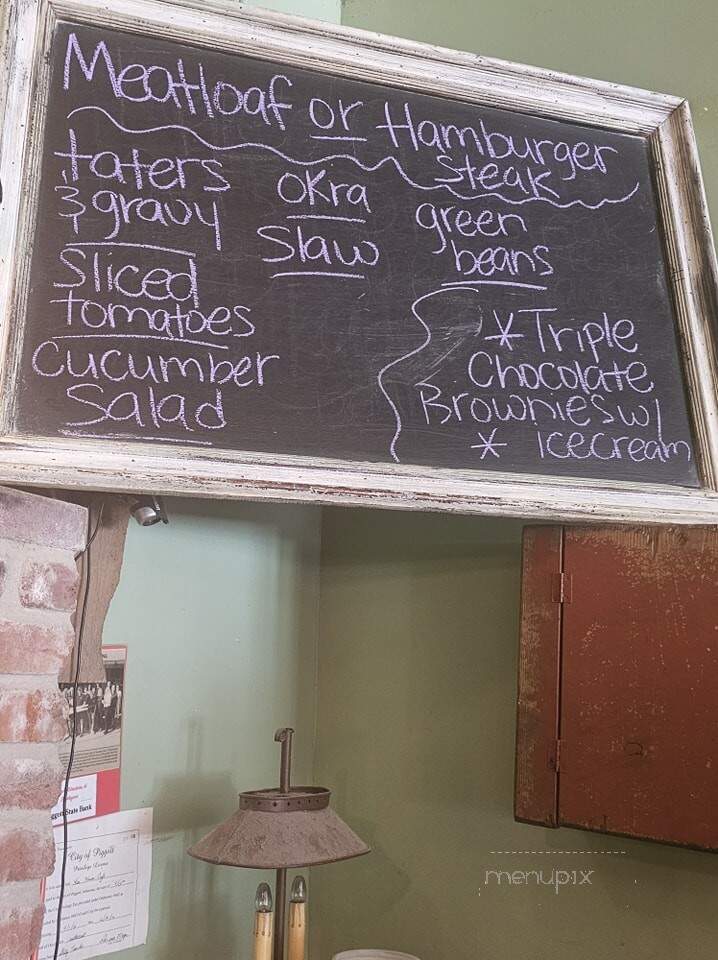 Meatloaf or Hamburger
Steak
taters
& gravy
Sliced
tomatoes
Cucumber
Salad
okra
Slaw
green
beans
* Triple
Chocolate
Brownies w/
* Icecream
State Bank
City of Piggott
menupix